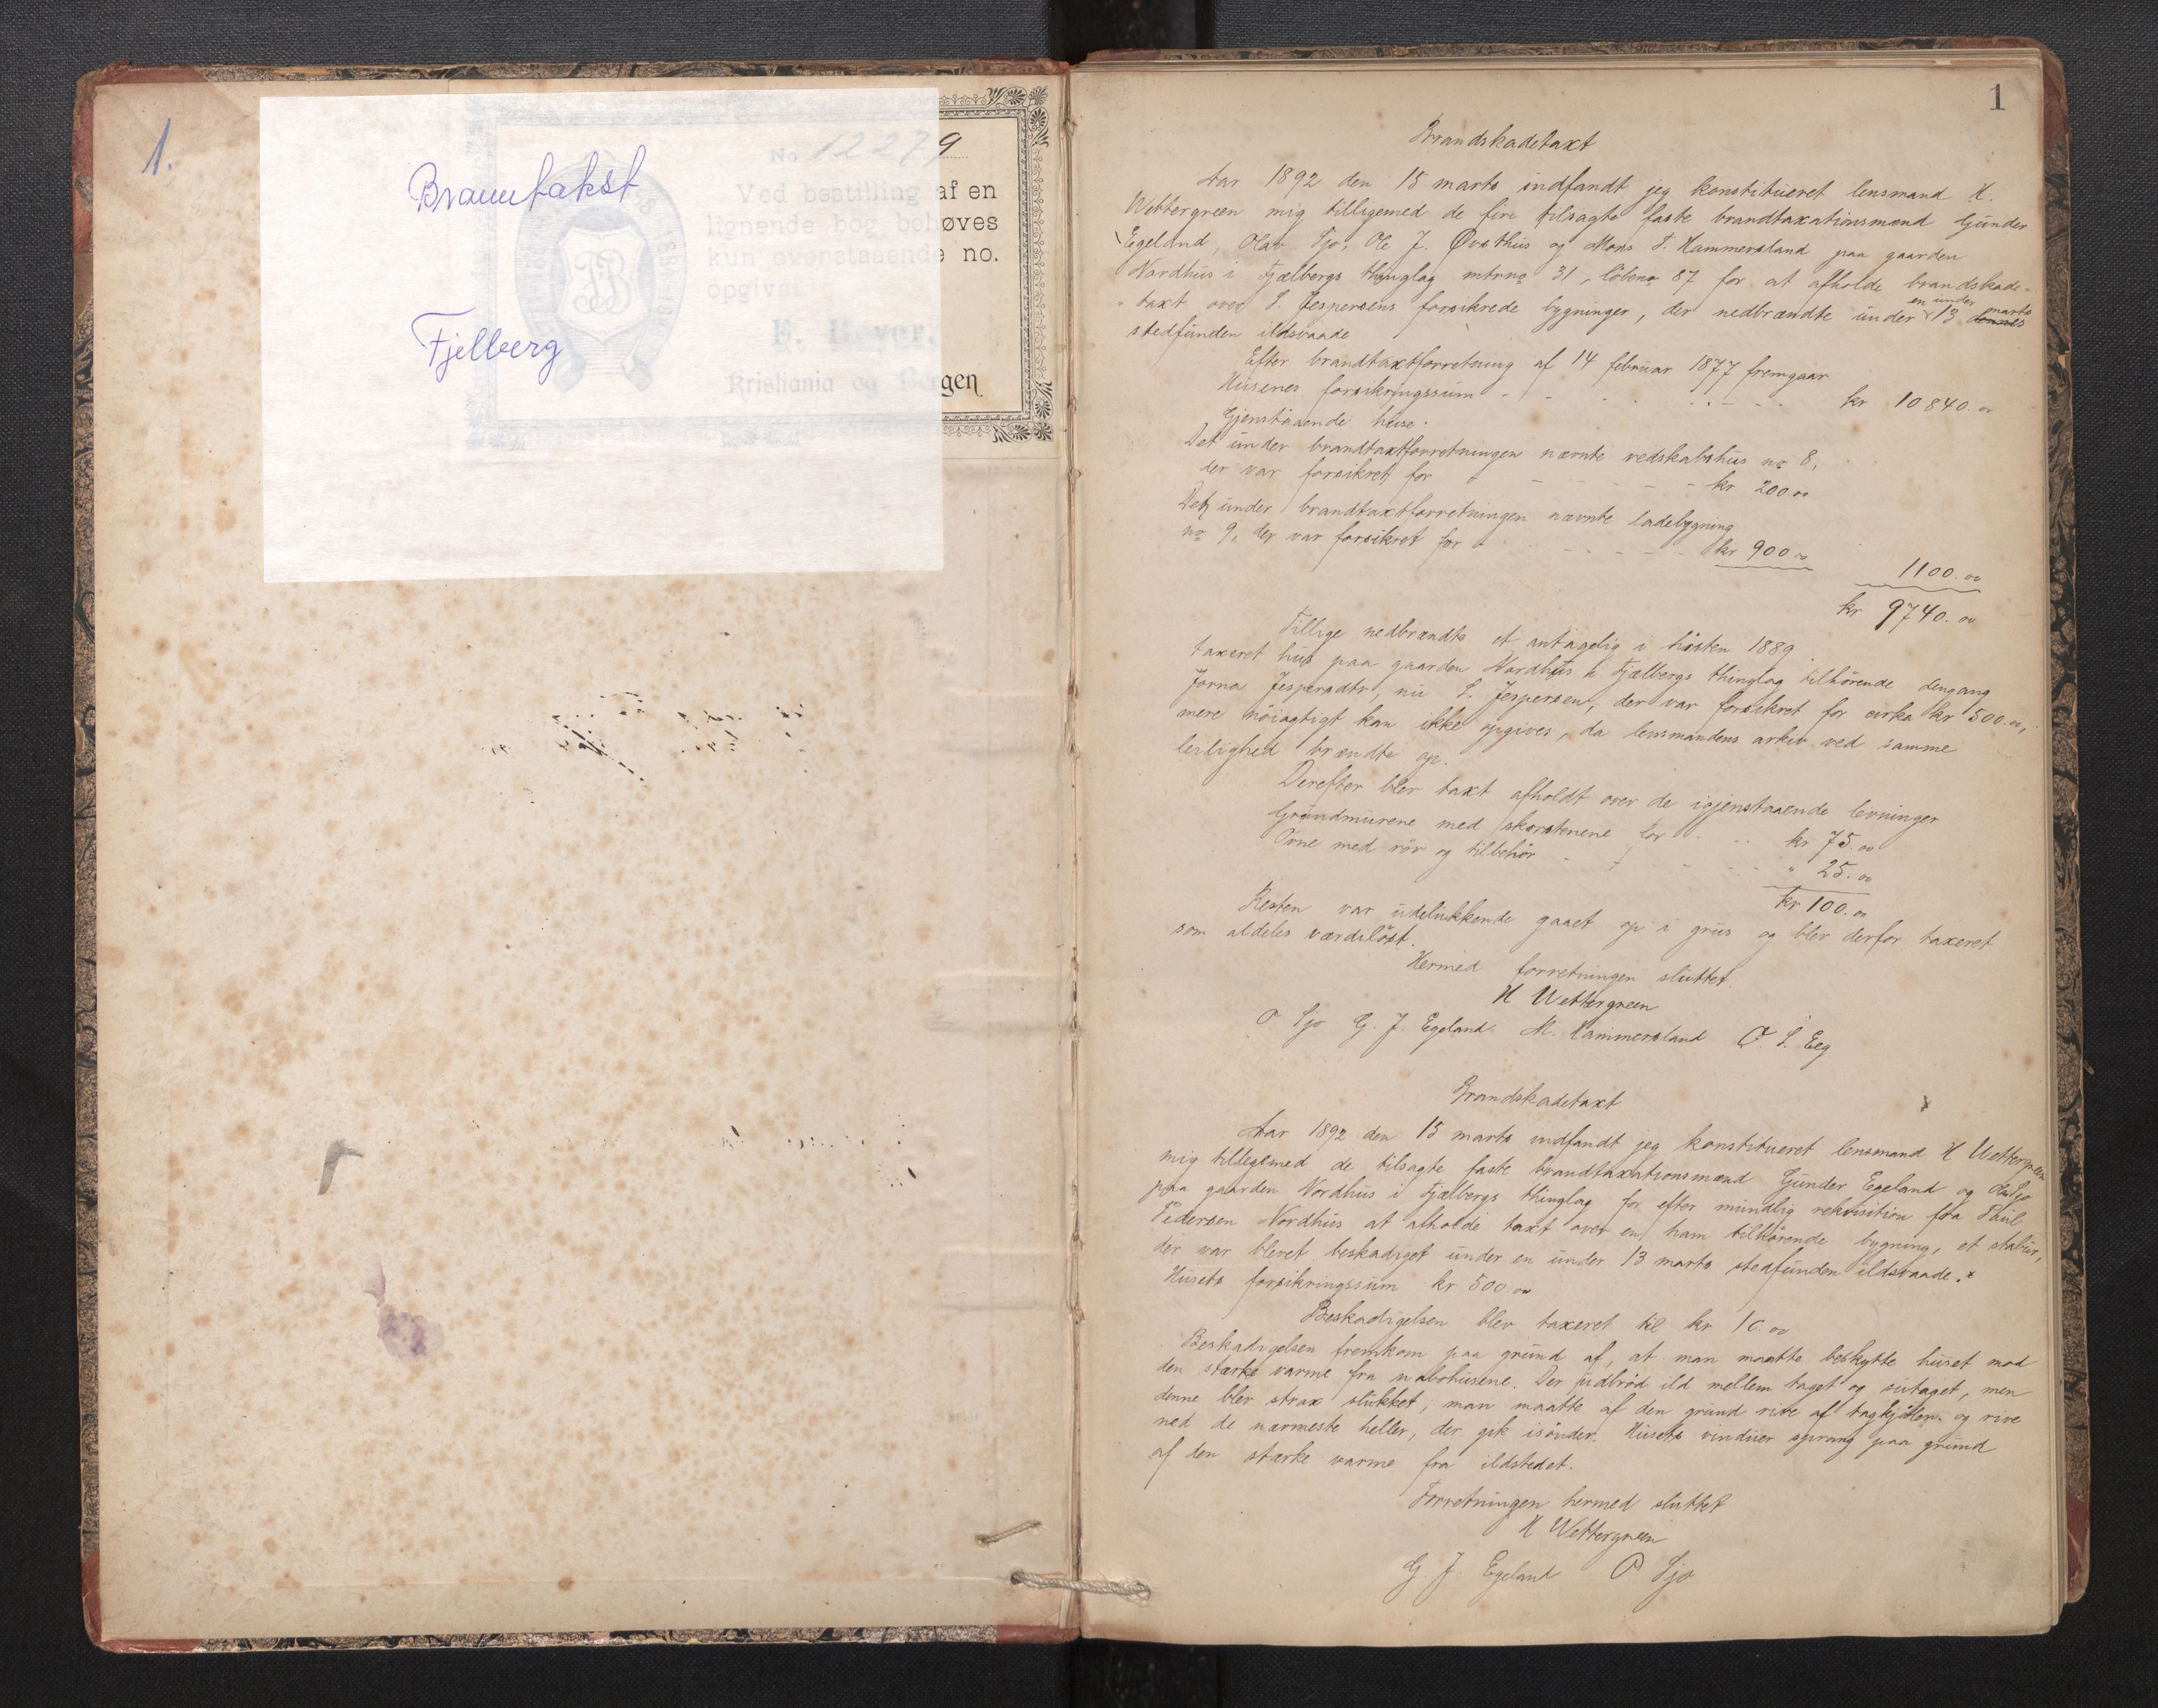 1.
Branntakst
Fjelberg
No 12279
Ved bestilling af en
lignende bog behøves
kun ovenstaaende no.
opgives
F. Beyer,
Kristiania og Bergen
1
Brandskadetaxt
Aar 1892 den 15 marts indfandt jeg konstitueret lensmand H.
Wettergreen mig tilligemed de fire tilsagte faste brandtaxationsmænd Gunder
Egeland, Olav Sjo, Ole J. Østhus og Mons T. Hammersland paa gaarden
Nordhus i Fjælbergs thinglag mtrno 31, löbeno 87 for at afholde brandskade-
taxt over S. Jespersens forsikrede bygninger, der nedbrændte under en under 13 dennes marts
stedfunden ildsvaade
Efter brandtaxtforretning af 14 februar 1877 fremgaar
Husenes forsikringssum kr 10840.00
Gjenstaaende huse.
Det under brandtaxtforretningen nævnte redskabshus no 8,
der var forsikret for kr 200.00
Det under brandtaxtforretningen nævnte ladebygning
no 9, der var forsikret for kr 900.00
1100.00
kr 9740.00
Tillige nedbrændte et antagelig i hösten 1889
taxeret hus paa gaarden Nordhus i Fjælbergs thinglag tilhörende dengang
Jorna Jespersdtr, nu S. Jespersen, der var forsikret for cirka kr 500.00,
mere nöiagtigt kan ikke opgives, da lensmandens arkiv ved samme
leilighed brændte op.
Derefter blev taxt afholdt over de igjenstaaende levninger
Grundmurene med skorstenene for kr 75.00
Ovne med rör og tilbehör " 25.00
kr 100.00
Resten var udelukkende gaaet op i grus og blev derfor taxeret
som aldeles værdilöst.
Hermed forretningen sluttet.
H Wettergreen
O Sjo G. J. Egeland M. Hammersland O. S. Eeg
Brandskadetaxt
Aar 1892 den 15 marts indfandt jeg konstitueret lensmand H Wettergreen
mig tilligemed de tilsagte faste brandtaxationsmænd Gunder Egeland og Olav Sjo
paa gaarden Nordhus i Fjælbergs thinglag for efter mundlig rekvisition fra Poul
Pedersen Nordhus at afholde taxt over en ham tilhörende bygning, et stabur,
der var blevet beskadiget under en under 13 marts stedfunden ildsvaade. x
Husets forsikringssum kr 500.00
Beskadigelsen blev taxeret til kr 10.00
Beskadigelsen fremkom paa grund af, at man maatte beskytte huset mod
den stærke varme fra nabohusene. Der udbröd ild mellem taget og sutaget, men
denne blev strax slukket; man maatte af den grund rive af tagkjölen og rive
ned de nærmeste heller, der gik isönder. Husets vinduer sprang paa grund
af den stærke varme fra ildstedet.
Forretningen hermed sluttet
H Wettergreen
G. J. Egeland O Sjo